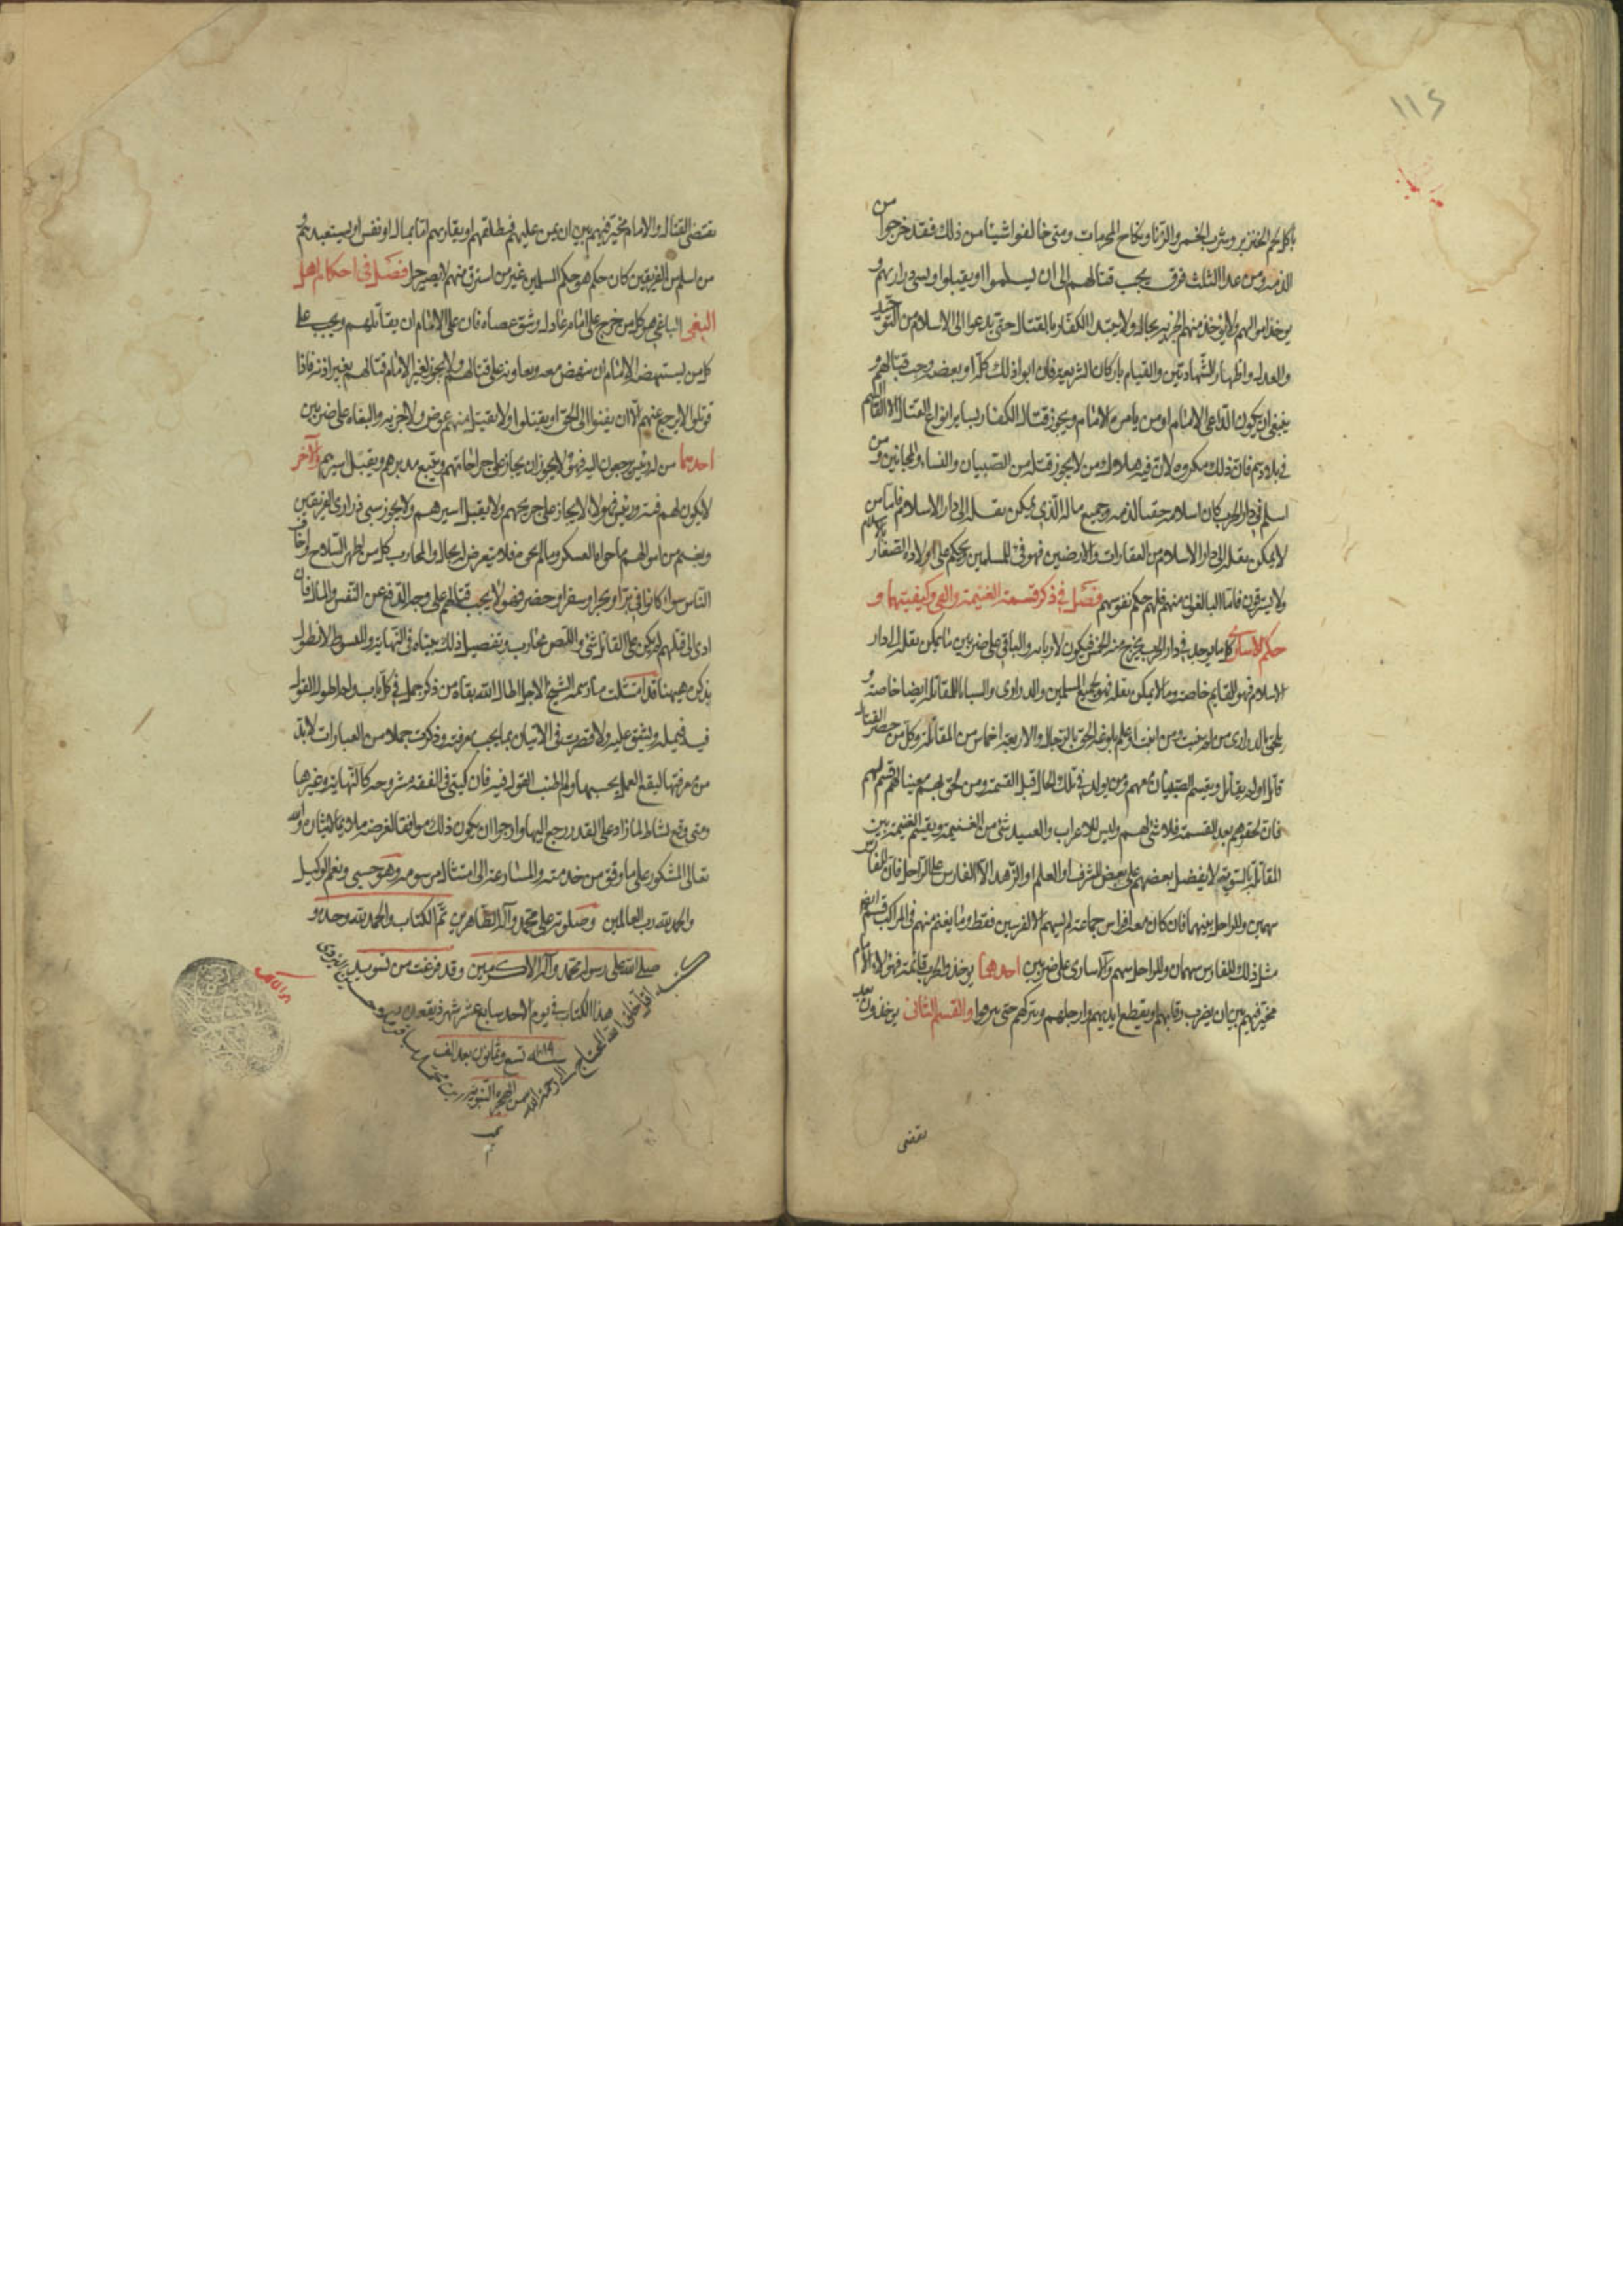 ١١٤
باكل لحم الخنزير وشرب الخمر والزنا ونكاح المحرمات ومتى خالفوا شيئا من ذلك فقد خرجوا من
الذمه ومن عدا الثلث فرق يجب قتالهم الى ان يسلموا او يقتلوا ويسبى ذراريهم و
يوخذ اموالهم ولا يوخذ منهم الجزيه بحال ولا يبتدا الكفار بالقتال حتى يدعوا الى الاسلام من التوحيد
والعدل واظهار الشهادتين والقيام باركان الشريعه فان ابوا ذلك كله او بعضه وجب قتالهم و
ينبغى ان يكون الداعى الامام او من يامره الامام ويجوز قتال الكفار بساير انواع القتال الا القاء السم
فى بلادهم فان ذلك مكروه لان فيه هلاك من لا يجوز قتله من الصبيان والنساء والمجانين ومن
اسلم فى دار الحرب كان اسلامه حقنا لدمه وجميع ماله الذى يمكن نقله الى دار الاسلام فاما من
لا يمكن نقله الى دار الاسلام من العقارات والارضين فهو فئ للمسلمين ويحكم على اولاده الصغار بالاسلام
ولا يسترقون فاما البالغون منهم فلهم حكم نفوسهم فصل فى ذكر قسمة الغنيمة والفئ وكيفيتهما و
حكم الاسارى كلما يوجد فى دار الحرب يخرج منه الخمس فيكون لاربابه والباقى على ضربين ما يمكن نقله الى دار
الاسلام فهو للغانم خاصه وما لا يمكن نقله فهو لجميع المسلمين والذرارى والسبايا للمقاتله ايضا خاصه و
يلحق بالذرارى من لم ينبت ومن انبت او علم بلوغه الحق بالرجال والاربعه اخماس من المقاتلة وكل من حضر القتال
قاتل او لم يقاتل ويقسم للصبيان معهم ومن يولد فى تلك الحال قبل القسمه ومن لحق بهم معينا لهم قسم لهم
فان لحقوهم بعد القسمة فلا شئ لهم وليس للاعراب والعبيد شئ من الغنيمة ويقسم الغنيمة بين
المقاتلة بالسوية لا يفضل بعضهم على بعض لشرف او العلم او الزهد الا الفارس على الراجل فان للفارس
سهمين وللراجل سهما فان كان معه افراس جماعة لم يسهم الا لفرسين فقط وما يغنم منهم فى المراكب قسم ايضا
مثل ذلك للفارس سهمان وللراجل سهم والاسارى على ضربين احدهما يوخذ والحرب قائمة فهولاء الامام
مخير فيهم بين ان يضرب رقابهم او يقطع ايديهم وارجلهم ويتركهم حتى ينزفوا والقسم الثانى يوخذون بعد
تقضى
تقضى القتال والامام مخير فيهم بين ان يمن عليهم فيطلقهم او يفاديهم اما بمال او نفس او يستعبدهم
من اسلم من الفريقين كان حكمه هو حكم المسلمين غير من استرق منهم لا يصير حرا فصل فى احكام اهل
البغى الباغى هو كل من خرج على امام عادل وشق عصاه فان على الامام ان يقاتلهم ويجب على
كل من يستنهضه الامام ان ينهض معه ويعاونه على قتالهم ولا يجوز لغير الامام قتالهم بغير اذنه فاذا
قوتلوا لا يرجع عنهم الا ان يفيئوا الى الحق او يقتلوا ولا يقبل منهم عوض ولا جزيه والبغاه على ضربين
احدهما من له رئيس يرجعون اليه فهولاء يجوز ان يجاز على جراحاتهم ويتبع مدبرهم ويقتل اسيرهم والاخر
لا يكون لهم فئه ورئيس فهولاء لا يجاز على جريحهم ولا يقتل اسيرهم ولا يجوز سبى ذرارى الفريقين
ويغنم من اموالهم ما حواه العسكر وما لم يحوه فلا يتعرض له بحال والمحارب كل من اظهر السلاح واخاف
الناس سواء كانوا فى بر او بحر او سفر او حضر فهولاء يجب قتالهم على وجه الدفع عن النفس والمال فان
ادى الى قتلهم لم يكن على القاتل شئ واللص محارب وتفصيل ذلك بيناه فى النهاية والمبسوط لا نطول
بذكره هيهنا قد امتثلت ما رسمه الشيخ الاجل اطال الله بقاه من ذكر جمل فى كل باب ولم اطول القول
فيه فيمله ويشق عليه ولا قصرت فى الاتيان بما يجب معرفته وذكرت جملا من العبادات لا بد
من معرفتها ليقع العمل بحسبها ولم اطنب القول فيه فان كتبى فى الفقه مشروحه كالنهاية وغيرها
ومتى وقع نشاط لما زاد على القدر رجع اليها وارجوا ان يكون ذلك موافقا لغرضه ملايما لايثاره والله
تعالى المشكور على ما وفق من خدمته والمسارعة الى امتثال مرسومه وهو حسبى ونعم الوكيل
والحمد لله رب العالمين وصلوته على محمد وآله الطاهرين تم الكتاب والحمد لله وحده و
صلى الله على رسوله محمد وآله الاكرمين وقد فرغت من تسويد
هذا الكتاب فى يوم الاحد سابع عشر شهر ذيقعده
سنه ١٠٨٩ تسع وثمانون بعد الف
من الهجرة النبويه
كتبه اقل خلق الله المحتاج الى رحمة الله